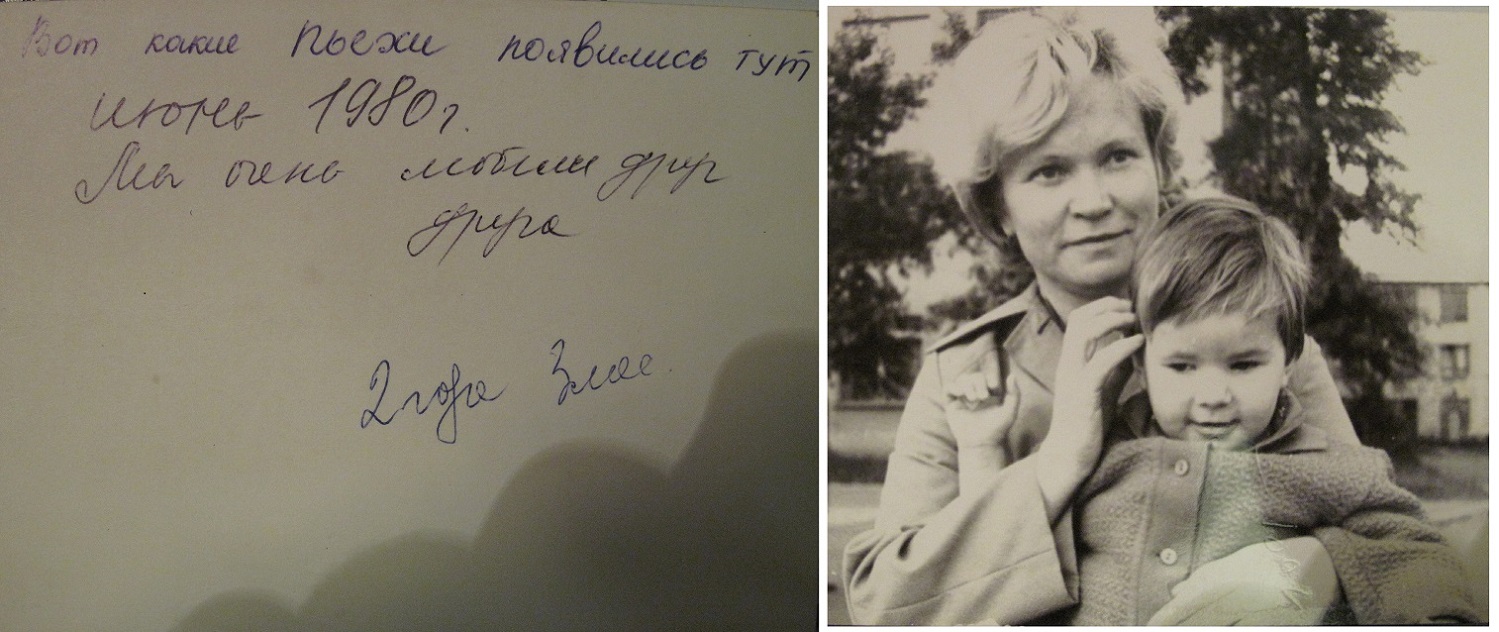 Вот какие Пьехи появились тут
июнь 1980г.
Мы очень любили друг
друга
2 года 3 мес.